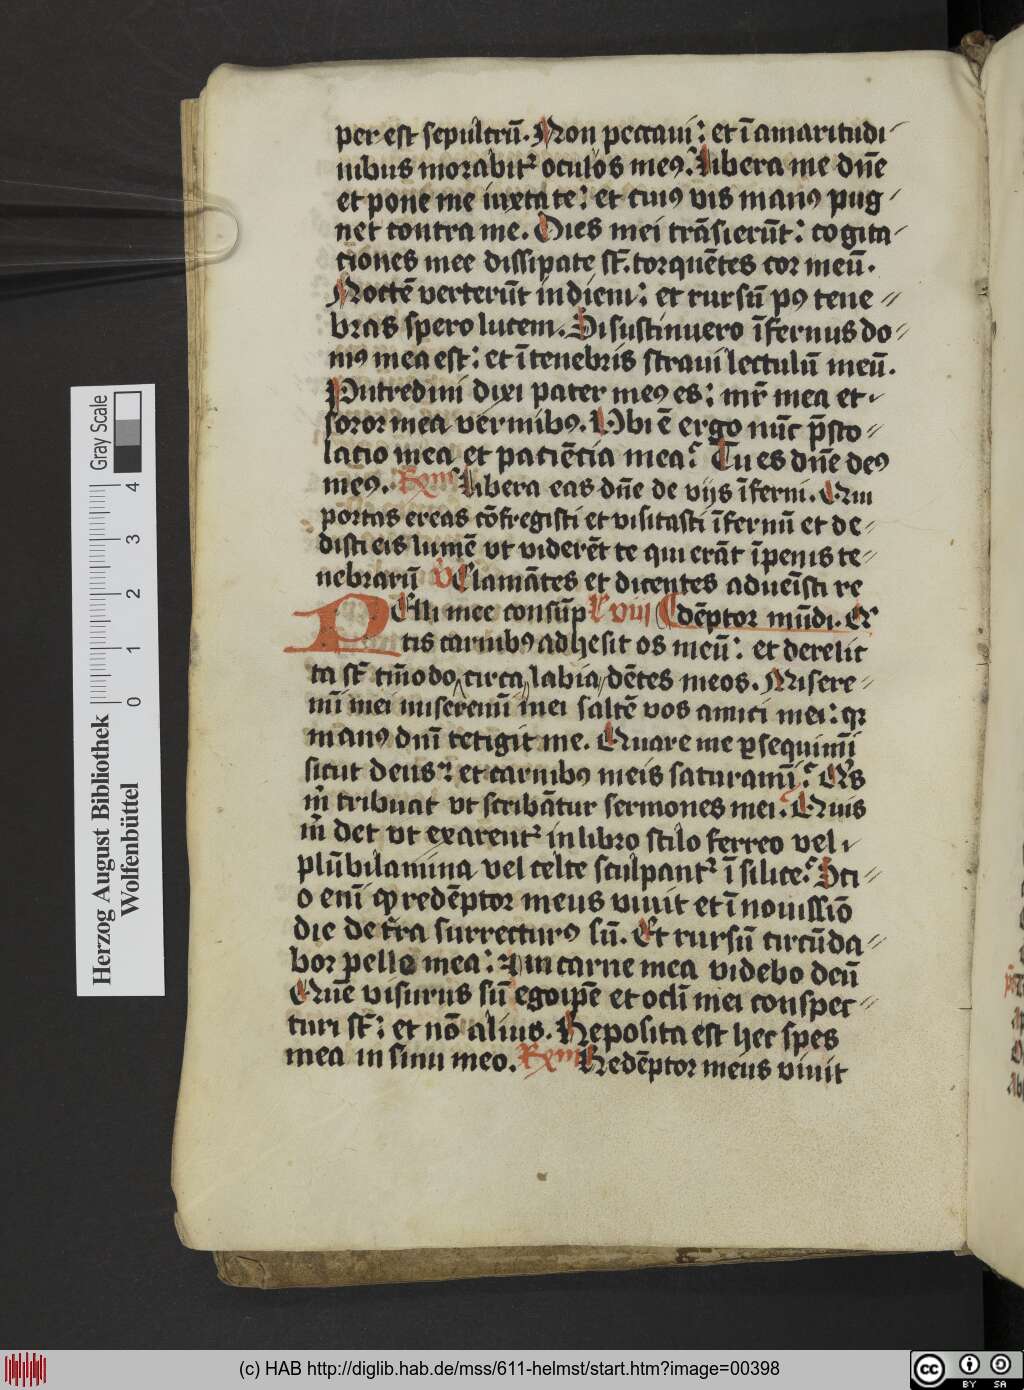 per est sepulcrū. Non peccaui: et ī amaritudi
nibus morabitᷣ oculos meꝰ. Libera me dn̄e
et pone me iuxta te: et cuiꝰ vis manꝰ pug
net contra me. Dies mei trāsierūt: cogita
ciones mee dissipate st̄. torquētes cor meū.
Noctē verterūt in diem: et rursū pꝰ tene
bras spero lucem. Si sustinuero īfernus do
mꝰ mea est: et ī tenebris straui lectulū meū.
Putredini dixi pater meꝰ es: mr̄ mea et
soror mea vermibꝰ. Vbi ē ergo nūc p̄sto
latio mea et paciētia mea? Tu es dn̄e deꝰ
meꝰ. Libera eas dn̄e de vijs īferni. Qui
portas ereas cōfregisti et visitasti īfernū et de
disti eis lumē vt viderēt te qui erāt ī penis te
nebrarū V Clamātes et dicentes aduēisti re
PElli mee consūp R viii dēptor mūdi. C
tis carnibꝰ adhesit os meū: et derelic
ta st̄ tm̄odo circa labia dētes meos. Misere
mī mei miseremī mei saltē vos amici mei: qꝛ
manꝰ dnī tetigit me. Quare me ꝑsequimī
sicut deus: et carnibꝰ meis saturamī? Qꝰs
m̄ tribuat vt scribātur sermones mei? Quis
m̄ det vt exarentᷣ in libro stilo ferreo vel
plūbi lamina vel celte sculpantᷣ ī silice? Sci
o enī ꝙ redēptor meus viuit et ī nouissīo
die de tr̄ra surrecturꝰ sū. Et rursū circūda
bor pelle mea: ⁊ in carne mea videbo deū
Quē visurus sū ego ip̄e et ocl̄i mei conspec
turi st̄: et nō alius. Reposita est hec spes
mea in sinu meo. Redēptor meus viuit
Gray Scale
4
3
2
1
0
Herzog August Bibliothek
Wolfenbüttel
(c) HAB http://diglib.hab.de/mss/611-helmst/start.htm?image=00398
cc BY SA